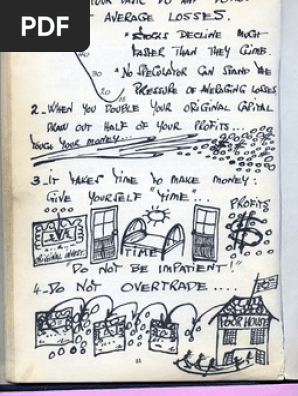 PDF
AVERAGE LOSSES.
* STOCKS DECLINE MUCH
FASTER THAN THEY CLIMB.
* NO SPECULATOR CAN STAND THE
PRESSURE OF AVERAGING LOSSES
30
20
2_ WHEN YOU DOUBLE YOUR ORIGINAL CAPITAL
DRAW OUT HALF OF YOUR PROFITS...
YOUR MONEY
3_ IT TAKES TIME TO MAKE MONEY:
GIVE YOURSELF "TIME"...
PROFITS
$
ORIGINAL INVEST.
TIME
DO NOT BE IMPATIENT!"
4_ DO NOT OVERTRADE....
YOUR HOUSE